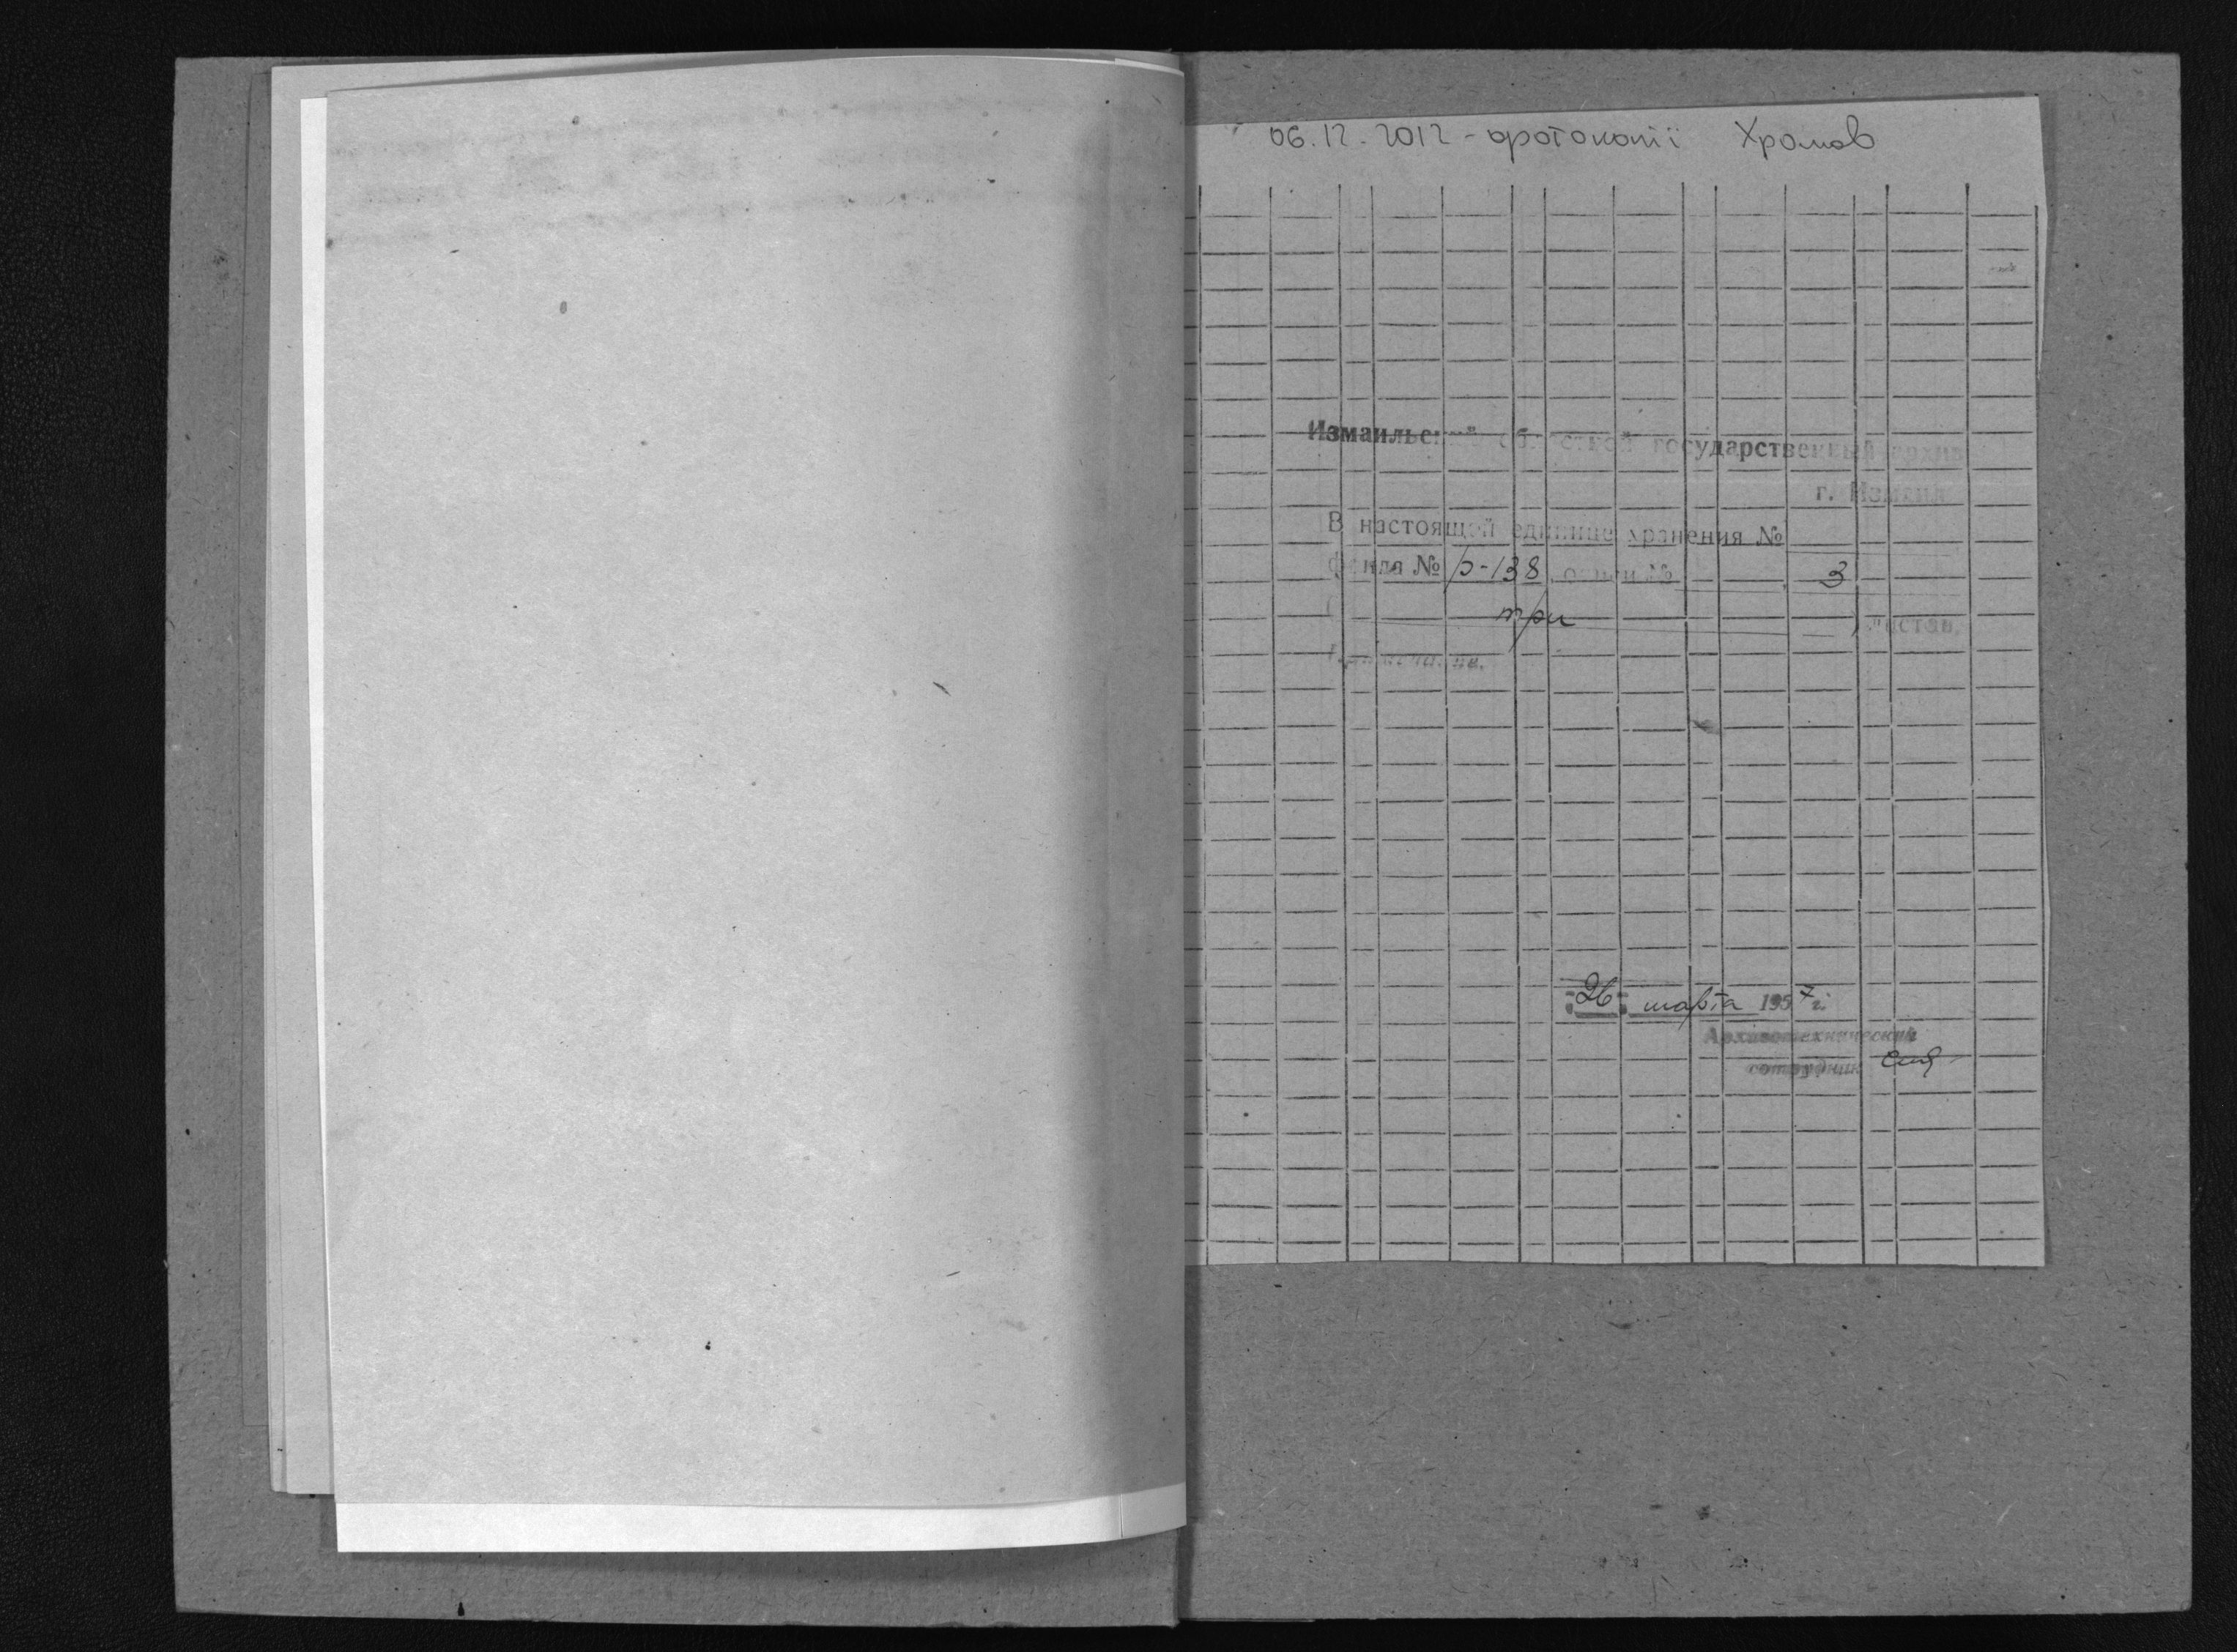 06.12.2012 - фотокопії Хромов
Измаильский областной государственный архив
г. Измаил
В настоящей единице хранения №
фонда № р-138 описи № 3
( три ) листов.
Примечание.
"26" марта 1957 г.
Архивотехнический
сотрудник